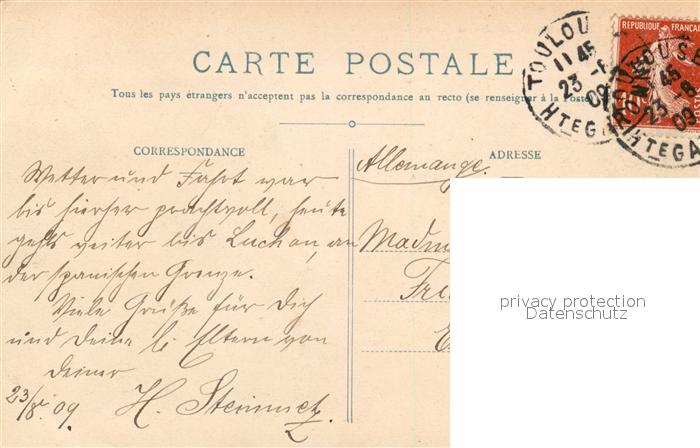 CARTE POSTALE
Tous les pays étrangers n'acceptent pas la correspondance au recto (se renseigner à la Poste)
CORRESPONDANCE
Wetter und Fahrt war
bis hierher prachtvoll, heute
gehts weiter bis Luchon, an
der spanischen Grenze.
Viele Grüße für Dich
und Deine l. Eltern von
Deiner
23/8. 09. H. Steinmetz
ADRESSE
Allemagne.
Madm
Fre
E
RÉPUBLIQUE FRANÇAISE
TOULOUSE
11 45
23 -8
09
HTE GA
45
23 -8
09
HTE GA
privacy protection
Datenschutz